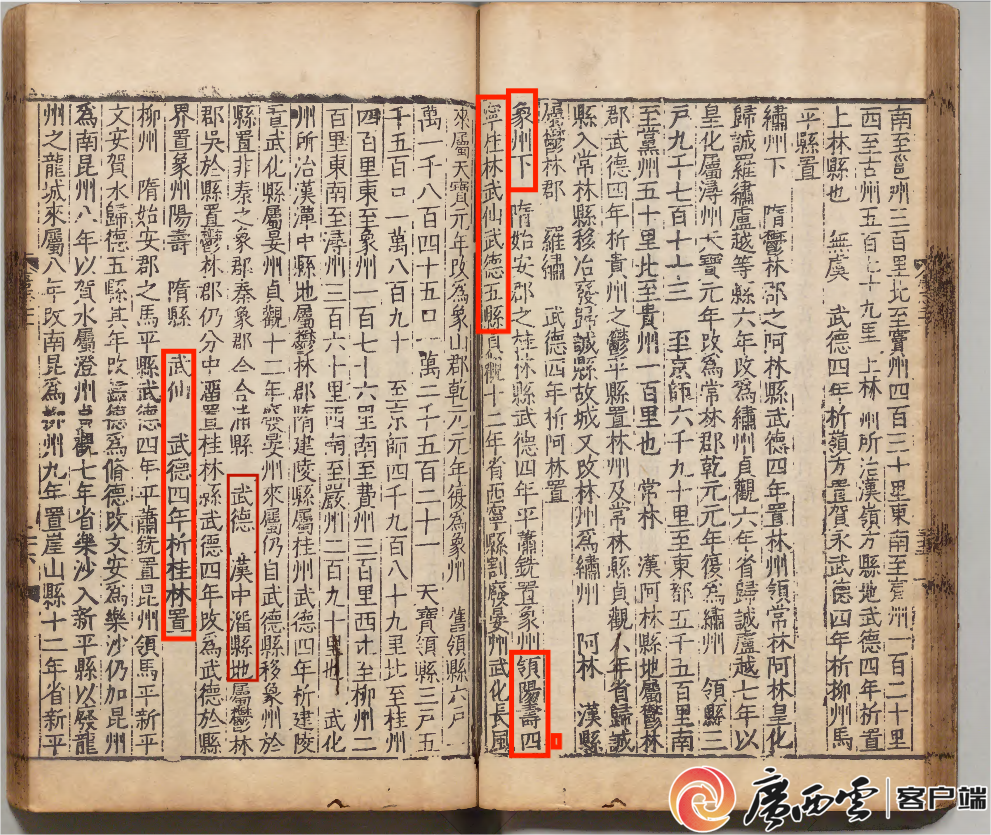 南至邕州三百里北至賓州四百三十里東南至賓州一百二十里
西至古州五百九十九里 上林 州所治漢嶺方縣地武德四年析置
上林縣也 無虞 武德四年析嶺方置賀永武德四年析柳州馬
平縣置
繡州下 隋鬱林郡之阿林縣武德四年置林州領常林阿林皇化
歸誠羅繡盧越等縣六年改為繡州貞觀六年省歸誠盧越七年以
皇化屬潯州天寶元年改為常林郡乾元元年復為繡州 領縣三
戶九千七百七十三 至京師六千九十里至東都五千五百里南
至黨州五十里北至貴州一百里也 常林 漢阿林縣地屬鬱林
郡武德四年析貴州之鬱平縣置林州及常林縣貞觀八年省歸誠
縣入常林縣移治廢歸誠縣故城又改林州為繡州 阿林 漢縣
屬鬱林郡 羅繡 武德四年析阿林置
象州下 隋始安郡之桂林縣武德四年平蕭銑置象州領陽壽四
寧桂林武仙武德五縣貞觀十二年省西寧縣割廢晏州武化長風
來屬天寶元年改為象山郡乾元元年復為象州 舊領縣六戶
萬一千八百四十五口 萬二千五百二十一 天寶領縣三戶五
千五百口一萬八百九十 至京師四千九百八十九里北至桂州
四百里東至象州一百七十六里南至費州三百里西北至柳州二
百里東南至潯州三百六十里西南至嚴州二百九十里也 武化
州所治漢潭中縣地屬鬱林郡隋建陵縣屬桂州武德四年析建陵
置武化縣屬晏州貞觀十二年廢晏州來屬仍自武德縣移象州於
縣置非秦之象郡秦象郡今合浦縣 武德 漢中溜縣地屬鬱林
郡吳於縣置鬱林郡仍分中溜置桂林縣武德四年改為武德於縣
界置象州陽壽 隋縣 武仙 武德四年析桂林置
柳州 隋始安郡之馬平縣武德四年平蕭銑置昆州領馬平新平
文安賀水歸德五縣其年改歸德為脩德改文安為樂沙仍加昆州
為南昆州八年以賀水屬澄州貞觀七年省樂沙入新平縣以廢龍
州之龍城來屬八年改南昆為柳州九年置崖山縣十二年省新平
廣西雲 客户端